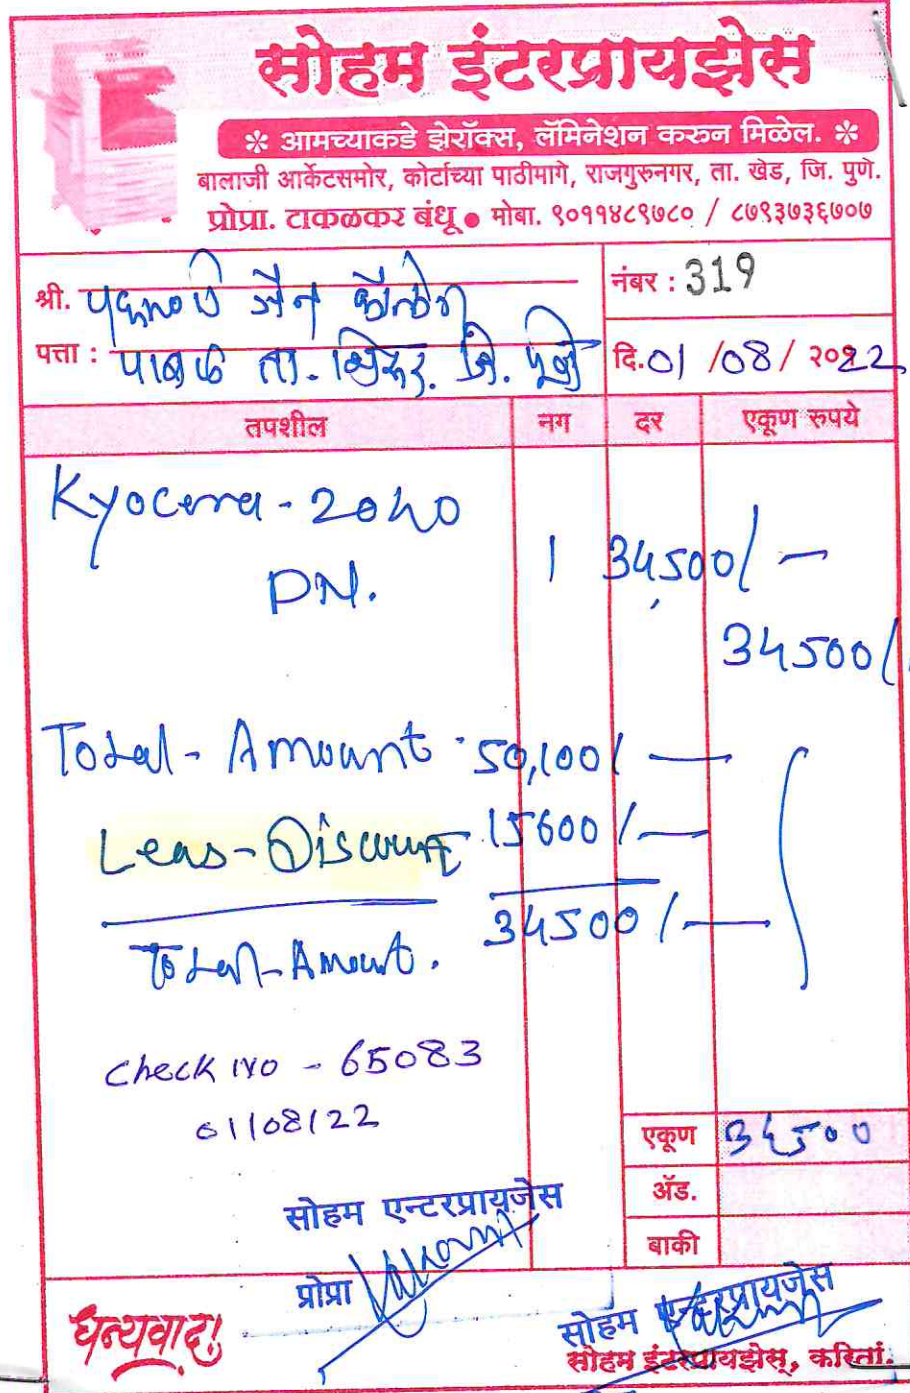 सोहम इंटरप्रायझेस
❊ आमच्याकडे झेरॉक्स, लॅमिनेशन करुन मिळेल. ❊
बालाजी आर्केटसमोर, कोर्टाच्या पाठीमागे, राजगुरुनगर, ता. खेड, जि. पुणे.
प्रोप्रा. टाकळकर बंधू ● मोबा. ९०११४८९७८० / ८७९३७३६७०७
श्री. जैन कॉलेज
नंबर : 319
पत्ता : पाबळ ता. शिरूर. जि. पुणे
दि. 01 /08/ २०22
तपशील नग दर एकूण रुपये
Kyocera - 2040
DN. 1 34,500/-
34500/
Total - Amount - 50,100/-
Less - Discount 15600/-
Total - Amount. 34500/-
Check No - 65083
01/08/22
एकूण 34500
ॲड.
बाकी
सोहम एन्टरप्रायजेस
प्रोप्रा
धन्यवाद!
सोहम एन्टरप्रायजेस
सोहम इंटरप्रायझेस्, करितां.